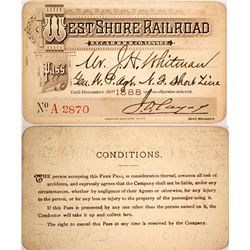 WEST SHORE RAILROAD
Pass
Mr. J. H. Whitman
Gen. W. B. Agt. N. Y. Short Line
Until December 31st 1888 unless otherwise ordered.
No A 2870
Genl. Manager.
CONDITIONS.
THE person accepting this FREE PASS, in consideration thereof, assumes all risk of
accidents, and expressly agrees that the Company shall not be liable, under any
circumstances, whether by negligence of their Agents or otherwise, for any injury to the
person, or for any loss or injury to the property of the passenger using it.
If this Pass is presented by any other person than the person named on it, the
Conductor will take it up and collect fare.
The right to cancel this Pass at any time is reserved by the Company.